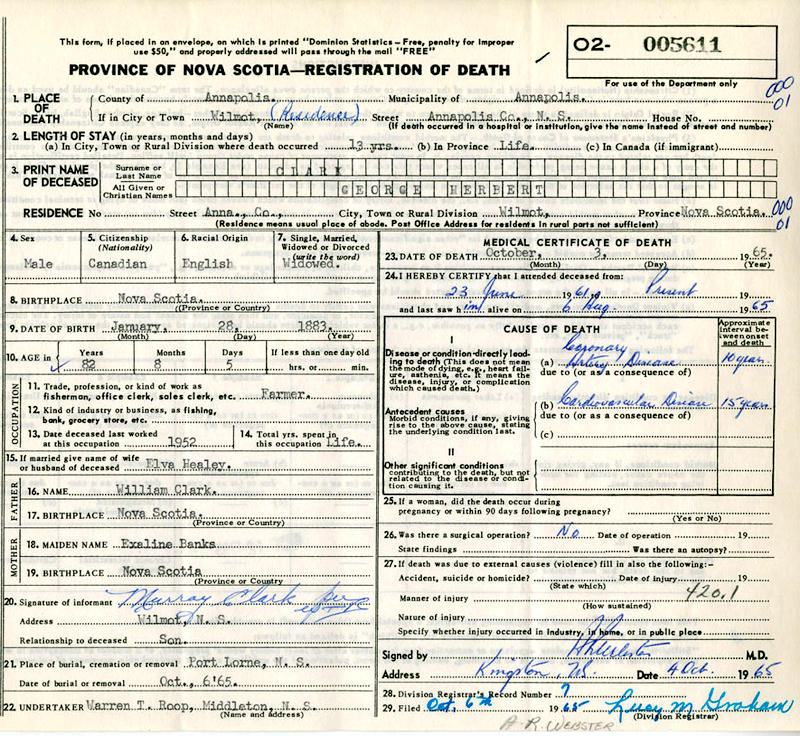 This form, if placed in an envelope, on which is printed "Dominion Statistics – Free, penalty for improper
use $50," and properly addressed will pass through the mail "FREE"
PROVINCE OF NOVA SCOTIA—REGISTRATION OF DEATH
O2- 005611
For use of the Department only
000
01
1. PLACE OF DEATH
County of Annapolis. Municipality of Annapolis.
If in City or Town Wilmot, (Residence) Street Annapolis Co., N. S. House No.
(Name) (If death occurred in a hospital or institution, give the name instead of street and number)
2. LENGTH OF STAY (in years, months and days)
(a) In City, Town or Rural Division where death occurred 13 yrs. (b) In Province Life. (c) In Canada (if immigrant)
3. PRINT NAME OF DECEASED
Surname or Last Name CLARK
All Given or Christian Names GEORGE HERBERT
RESIDENCE No Street Anna., Co., City, Town or Rural Division Wilmot, Province Nova Scotia.
000
01
(Residence means usual place of abode. Post Office Address for residents in rural parts not sufficient)
4. Sex
Male
5. Citizenship
(Nationality)
Canadian
6. Racial Origin
English
7. Single, Married,
Widowed or Divorced
(write the word)
Widowed.
8. BIRTHPLACE Nova Scotia.
((Province or Country)
9. DATE OF BIRTH January, 28, 1883.
(Month) (Day) (Year)
10. AGE in Years Months Days If less than one day old
82 8 5 hrs. or min.
OCCUPATION
11. Trade, profession, or kind of work as
fisherman, office clerk, sales clerk, etc. Farmer.
12. Kind of industry or business, as fishing,
bank, grocery store, etc.
13. Date deceased last worked
at this occupation 1952
14. Total yrs. spent in
this occupation Life.
15. If married give name of wife
or husband of deceased Elva Healey.
FATHER
16. NAME William Clark.
17. BIRTHPLACE Nova Scotia.
(Province or Country)
MOTHER
18. MAIDEN NAME Exaline Banks
19. BIRTHPLACE Nova Scotia
(Province or Country)
20. Signature of informant Murray Clark
Address Wilmot, N. S.
Relationship to deceased Son.
21. Place of burial, cremation or removal Port Lorne, N. S.
Date of burial or removal Oct., 6'65.
22. UNDERTAKER Warren T. Roop, Middleton, N. S.
(Name and address)
MEDICAL CERTIFICATE OF DEATH
23. DATE OF DEATH October, 3, 1965.
(Month) (Day) (Year)
24. I HEREBY CERTIFY that I attended deceased from:
23 June 1961, to Present 19
and last saw him alive on 6 Aug. 1965
CAUSE OF DEATH
Approximate
interval be-
tween onset
and death
I
Disease or condition directly lead-
ing to death (This does not mean
the mode of dying, e.g., heart fail-
ure, asthenia, etc. It means the
disease, injury, or complication
which caused death.)
(a) Coronary Artery Disease 10 years
due to (or as a consequence of)
Antecedent causes
Morbid conditions, if any, giving
rise to the above cause, stating
the underlying condition last.
(b) Cardiovascular Disease 15 years
due to (or as a consequence of)
(c)
II
Other significant conditions
contributing to the death, but not
related to the disease or condi-
tion causing it.
25. If a woman, did the death occur during
pregnancy or within 90 days following pregnancy?
(Yes or No)
26. Was there a surgical operation? No Date of operation 19
State findings Was there an autopsy?
27. If death was due to external causes (violence) fill in also the following:–
Accident, suicide or homicide? Date of injury 19
(State which)
Manner of injury 420.1
(How sustained)
Nature of injury
Specify whether injury occurred in Industry, in home, or in public place
Signed by M.D.
Address Kingston, N.S. Date 4 Oct. 1965
28. Division Registrar's Record Number ?
29. Filed Oct. 6th 1965 Lucy M Graham
(Division Registrar)
A. R. WEBSTER